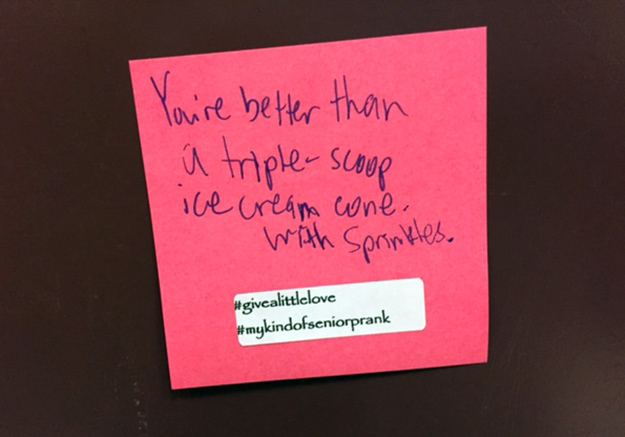 You're better than
a triple-scoop
ice cream cone.
With Sprinkles.
#givealittlelove
#mykindofseniorprank